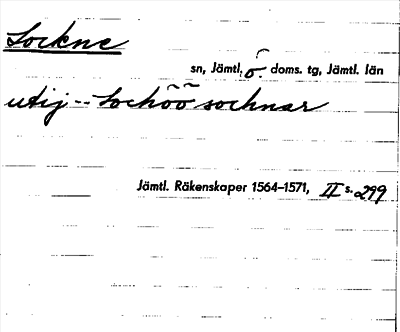 Lockne
sn, Jämtl, ö. doms. tg, Jämtl. län
utij -- Lochõõ sochnar
Jämtl. Räkenskaper 1564–1571, II s. 299